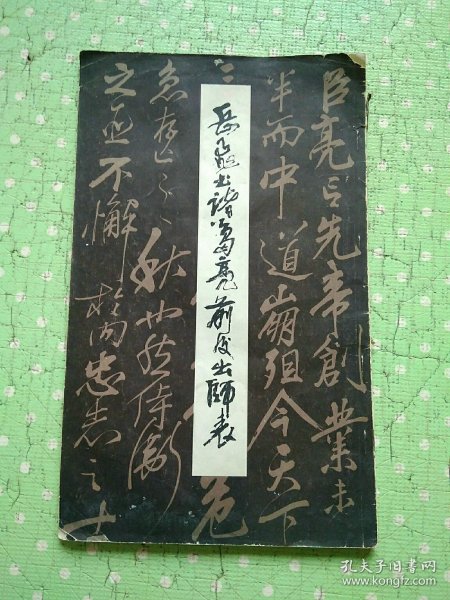 岳飞书诸葛亮前后出师表
臣亮言先帝創業未
半而中道崩殂今天下
三
危
急存亡之秋也然侍衛
之臣不懈於内忠志之士
孔夫子旧书网
www.kongfz.com